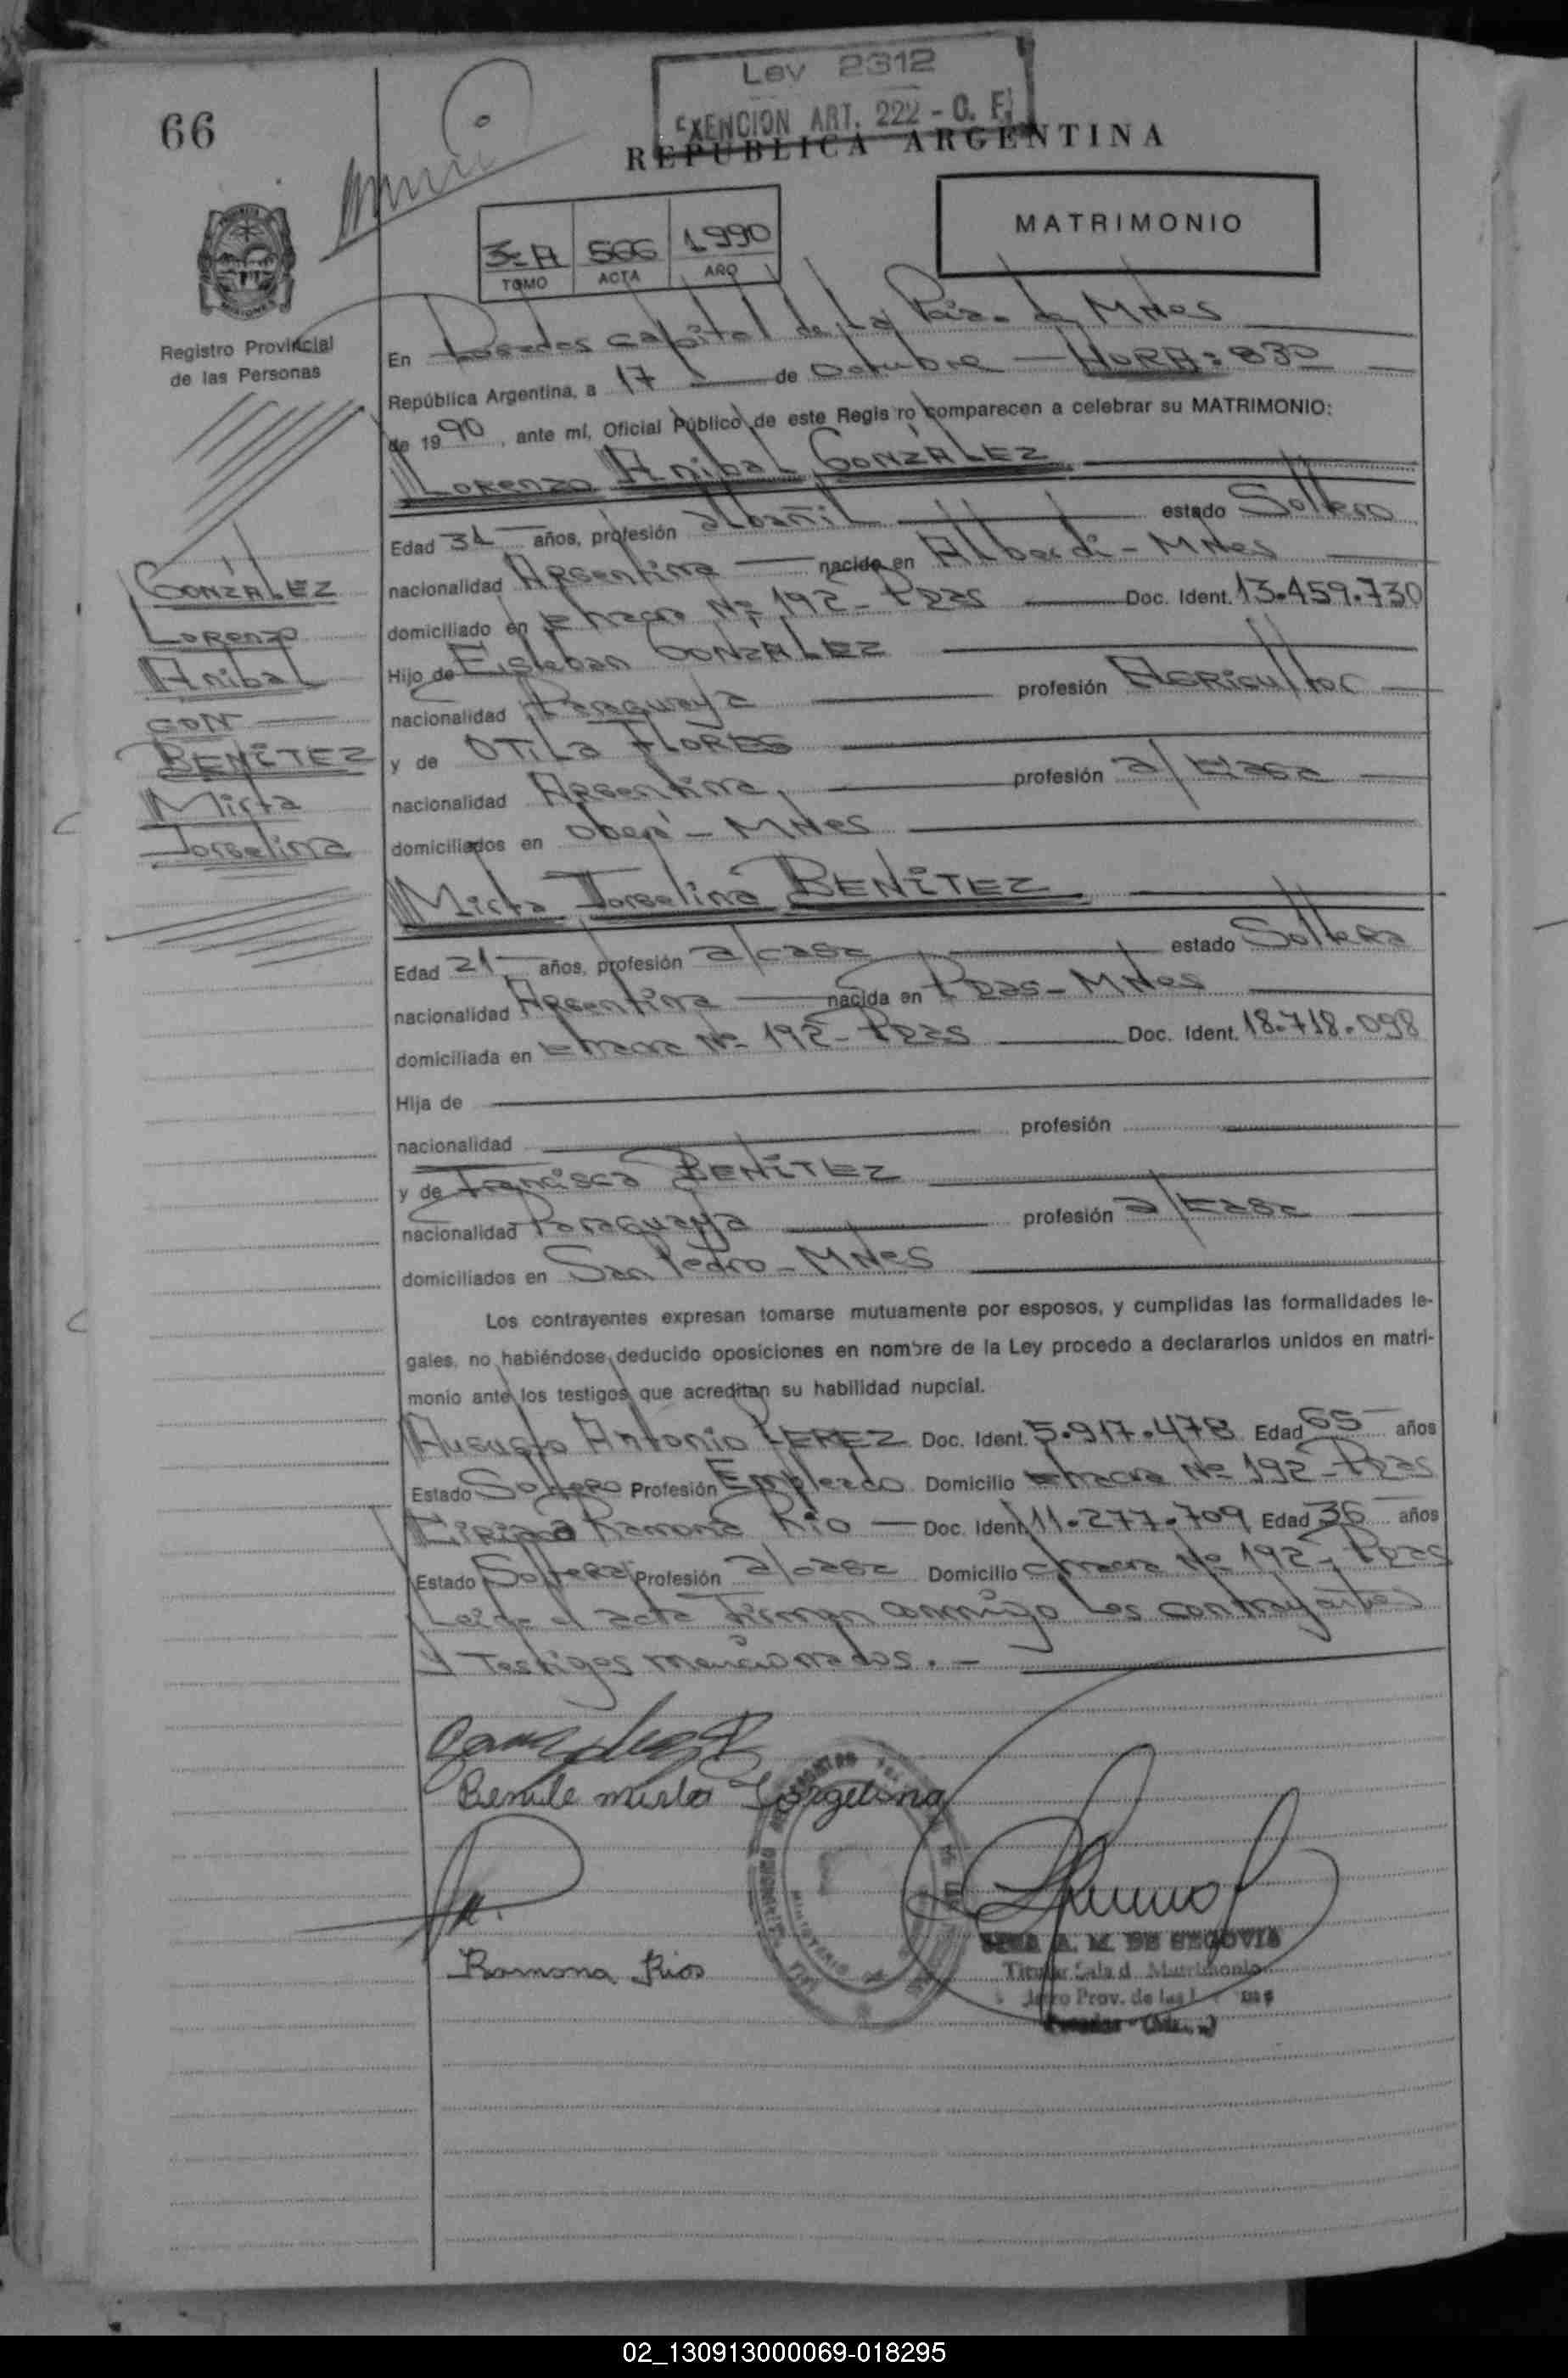 Ley 2312
EXENCION ART. 222 - C. F.
66
REPUBLICA ARGENTINA
MATRIMONIO
3-A 566 1990
TOMO ACTA AÑO
Registro Provincial
de las Personas
En Posadas capital de la Pcia. de MNes
República Argentina, a 17 de Octubre HORA: 830
de 1990, ante mí, Oficial Público de este Regis ro comparecen a celebrar su MATRIMONIO:
Lorenzo Anibal GONZÁLEZ
Edad 34 años, profesión albañil estado Soltero
nacionalidad Argentina nacido en Alberdi - MNes
domiciliado en chacra Nº 192 - Pdas Doc. Ident. 13.459.730
Hijo de Esteban GONZALEZ
nacionalidad Paraguaya profesión Agricultor
y de OTILA FLORES
nacionalidad Argentina, profesión a/casa
domiciliados en Oberá - MNes
GONZÁLEZ
Lorenzo
Anibal
CON
BENÍTEZ
Mirta
Jorgelina
Mirta Jorgelina BENÍTEZ
Edad 21 años, profesión a/casa estado Soltera
nacionalidad Argentina nacida en Pdas - MNes
domiciliada en chacra Nº 192 - Pdas Doc. Ident. 18.718.098
Hija de
nacionalidad profesión
y de Francisca BENÍTEZ
nacionalidad Paraguaya profesión a/casa
domiciliados en San Pedro - MNes
Los contrayentes expresan tomarse mutuamente por esposos, y cumplidas las formalidades le-
gales, no habiéndose deducido oposiciones en nombre de la Ley procedo a declararlos unidos en matri-
monio ante los testigos que acreditan su habilidad nupcial.
Augusto Antonio PEREZ Doc. Ident. 5.917.478 Edad 65 años
Estado Soltero Profesión Empleado Domicilio chacra Nº 192 - Pdas
Ramona Rio Doc. Ident. 11.277.709 Edad 36 años
Estado Soltera Profesión a/casa Domicilio chacra Nº 192 - Pdas
Leída el acta firman conmigo los contrayentes
y Testigos mencionados. -
Benite mirta Jorgelina
Ramona Rios
A. M. DE SEGOVIA
Titular Sala d Matrimonio
Prov. de las
02_130913000069-018295